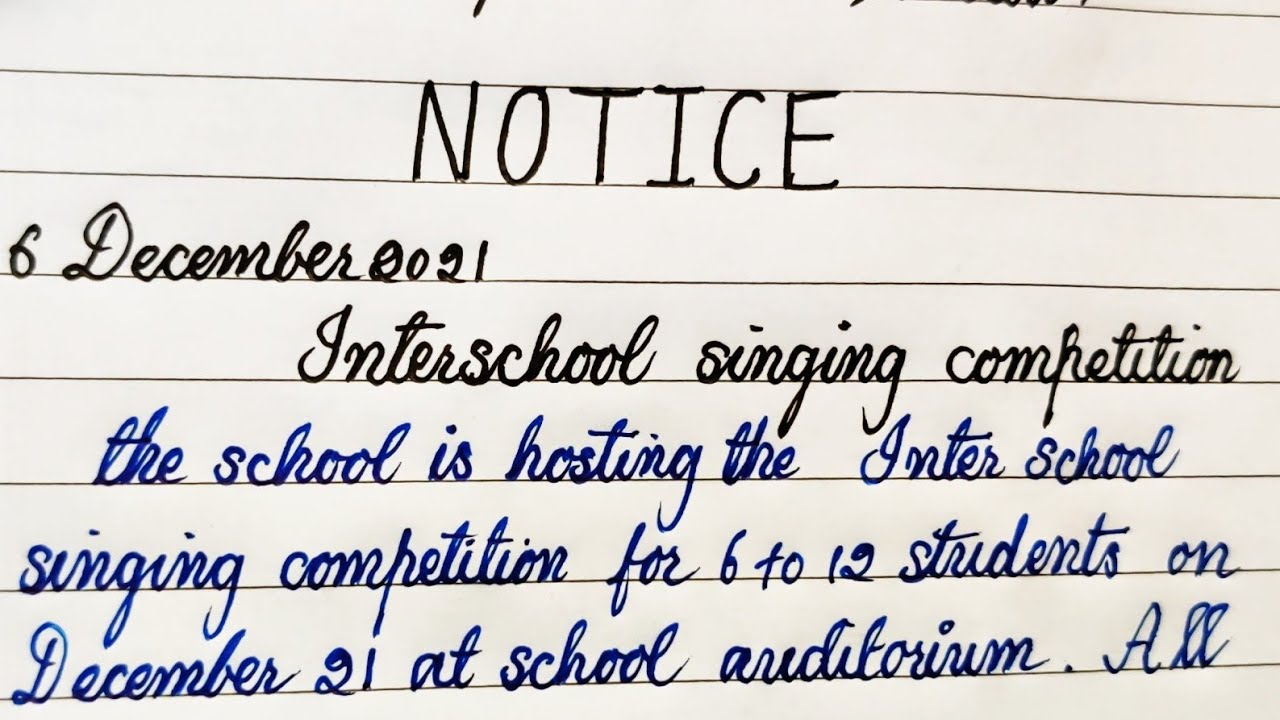 NOTICE
6 December 2021
Interschool singing competition
the school is hosting the Inter school
singing competition for 6 to 12 students on
December 21 at school auditorium. All